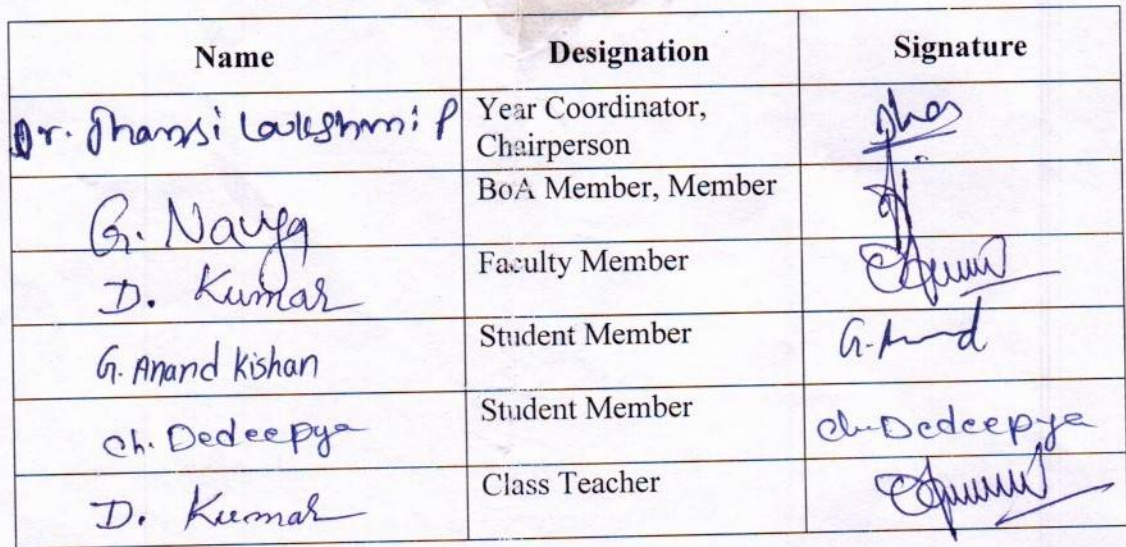 Name Designation Signature
Dr. Jhansi Lakshmi P Year Coordinator,
Chairperson
G. Navya BoA Member, Member
D. Kumar Faculty Member
G. Anand Kishan Student Member G. Anand
Ch. Dedeepya Student Member Ch. Dedeepya
D. Kumar Class Teacher